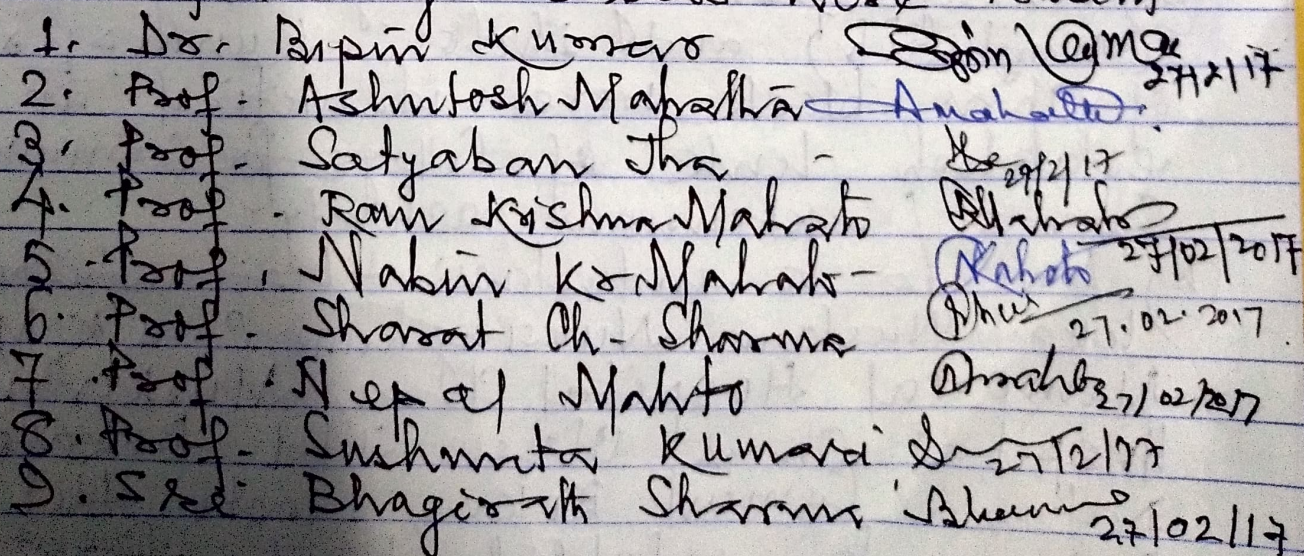 1. Dr. Bipin Kumar 27/2/17
2. Prof. Ashutosh Mahatha Amahatha
3. Prof. Satyaban Jha - 27/2/17
4. Prof. Ram Krishna Mahato Mahato 27/02/2017
5. Prof. Nabin Kr Mahato - Mahato
6. Prof. Sharat Ch. Sharma 27.02.2017
7. Prof. Nepal Mahto 27/02/2017
8. Prof. Sushmita Kumari 27/2/17
9. Sri Bhagirath Sharma 27/02/17